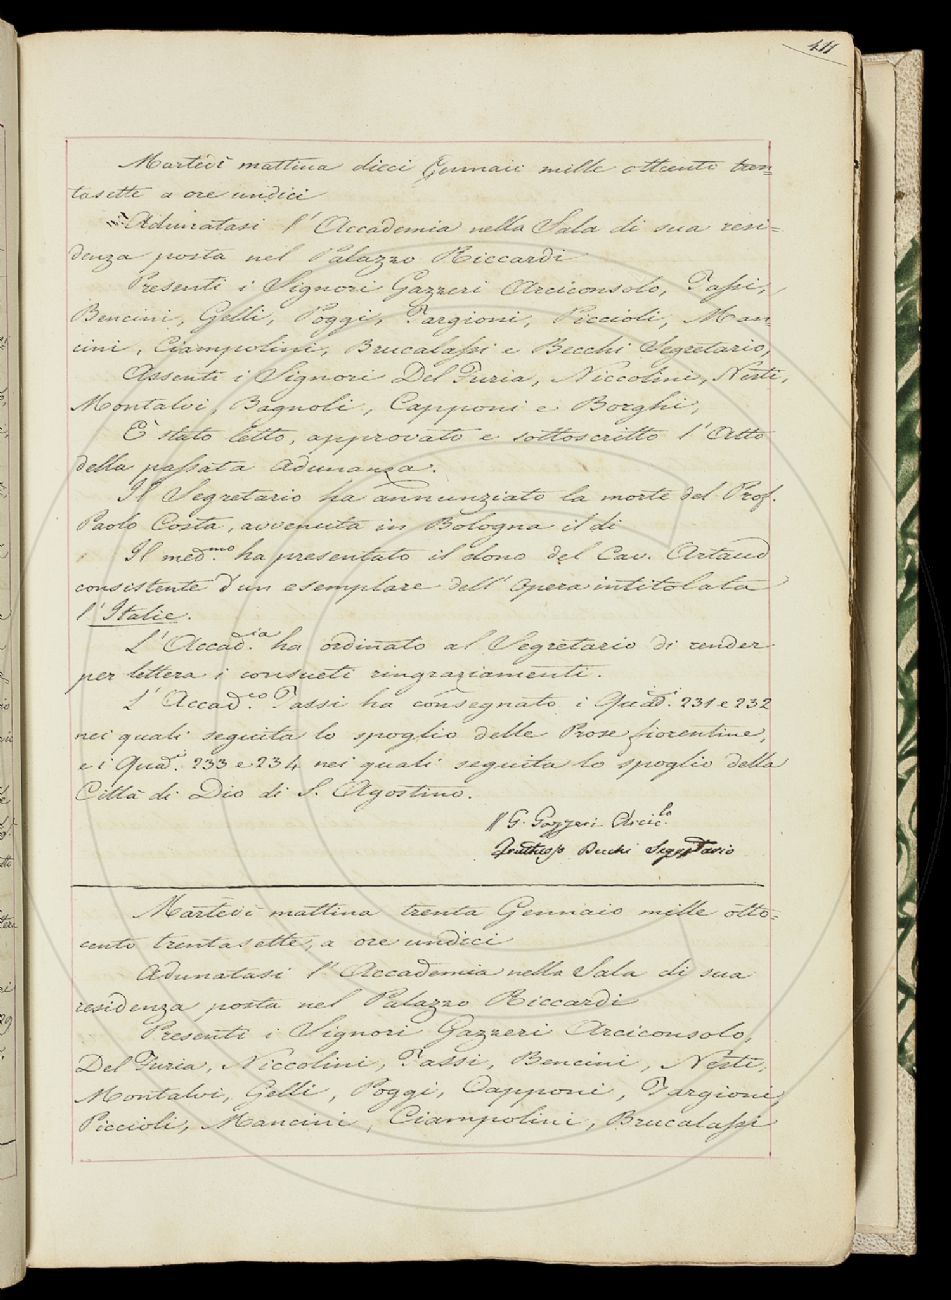 411
Martedì mattina dieci Gennaio mille ottcento tren=
tasette a ore undici
Adunatasi l'Accademia nella Sala di sua resi=
denza posta nel Palazzo Riccardi
Presenti i Signori Gazzeri Arciconsolo, Tassi,
Bencini, Gelli, Poggi, Targioni, Piccioli, Man=
cini, Ciampolini, Brucalassi e Becchi Segretario,
Assenti i Signori Del Furia, Niccolini, Nesti,
Montalvi, Bagnoli, Capponi e Borghi,
È stato letto, approvato e sottoscritto l'Atto
della passata adunanza.
Il Segretario ha annunziato la morte del Prof.
Paolo Costa, avvenuta in Bologna il dì
Il med.mo ha presentato il dono del Cav. Artaud
consistente d'un esemplare dell'opera intitolata
l'Italie.
L'Accad.ia ha ordinato al Segretario di render
per lettera i consueti ringraziamenti.
L'Accad.co Tassi ha consegnato i Quad.i 231 e 232
nei quali seguita lo spoglio delle Prose fiorentine,
e i Quad.i 233 e 234 nei quali seguita lo spoglio della
Città di Dio di S. Agostino.
G. Gazzeri Arcic.lo
Fruttuoso Becchi Segretario
Martedì mattina trenta Gennaio mille otto=
cento trentasette, a ore undici
Adunatasi l'Accademia nella Sala di sua
residenza posta nel Palazzo Riccardi
Presenti i Signori Gazzeri Arciconsolo,
Del Furia, Niccolini, Tassi, Bencini, Nesti,
Montalvi, Gelli, Poggi, Capponi, Targioni,
Piccioli, Mancini, Ciampolini, Brucalassi